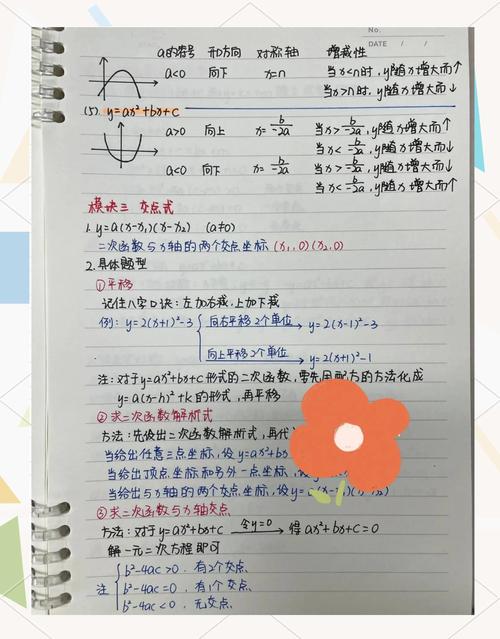 No.
DATE / /
a的符号 开方向 对称轴 增减性
a<0 向下 x=n 当x<n时,y随x增大而↑
当x>n时,y随x增大而↓
(5). y=ax²+bx+c
a>0 向上 x=b/-2a 当x>b/-2a,y随x增大而↑
当x<b/-2a,y随x增大而↓
a<0 向下 x=b/-2a 当x>b/-2a,y随x增大而↓
当x<b/-2a,y随x增大而↑
模块三 交点式
1. y=a(x-x₁)(x-x₂) (a≠0)
二次函数与x轴的两个交点坐标(x₁,0)(x₂,0)
2.具体题型
①平移
记住八字口诀:左加右减,上加下减
例:y=2(x+1)²-3 向右平移2个单位 → y=2(x-1)²-3
向上平移2个单位 → y=2(x+1)²-1
注:对于y=ax²+bx+c形式的二次函数,要先用配方的方法化成
y=a(x-h)²+k的形式,再平移
②求二次函数解析式
方法:先设出二次函数解析式,再代
当给出任意三点坐标,设y=ax²+bx
当给出顶点坐标和另外一点坐标,设
当给出与x轴的两个交点坐标,设y=
③求二次函数与x轴交点
方法:对于y=ax²+bx+c 令y=0 → 得ax²+bx+c=0
解一元二次方程即可
注 b²-4ac>0.有2个交点.
b²-4ac=0.有1个交点.
b²-4ac<0.无交点.